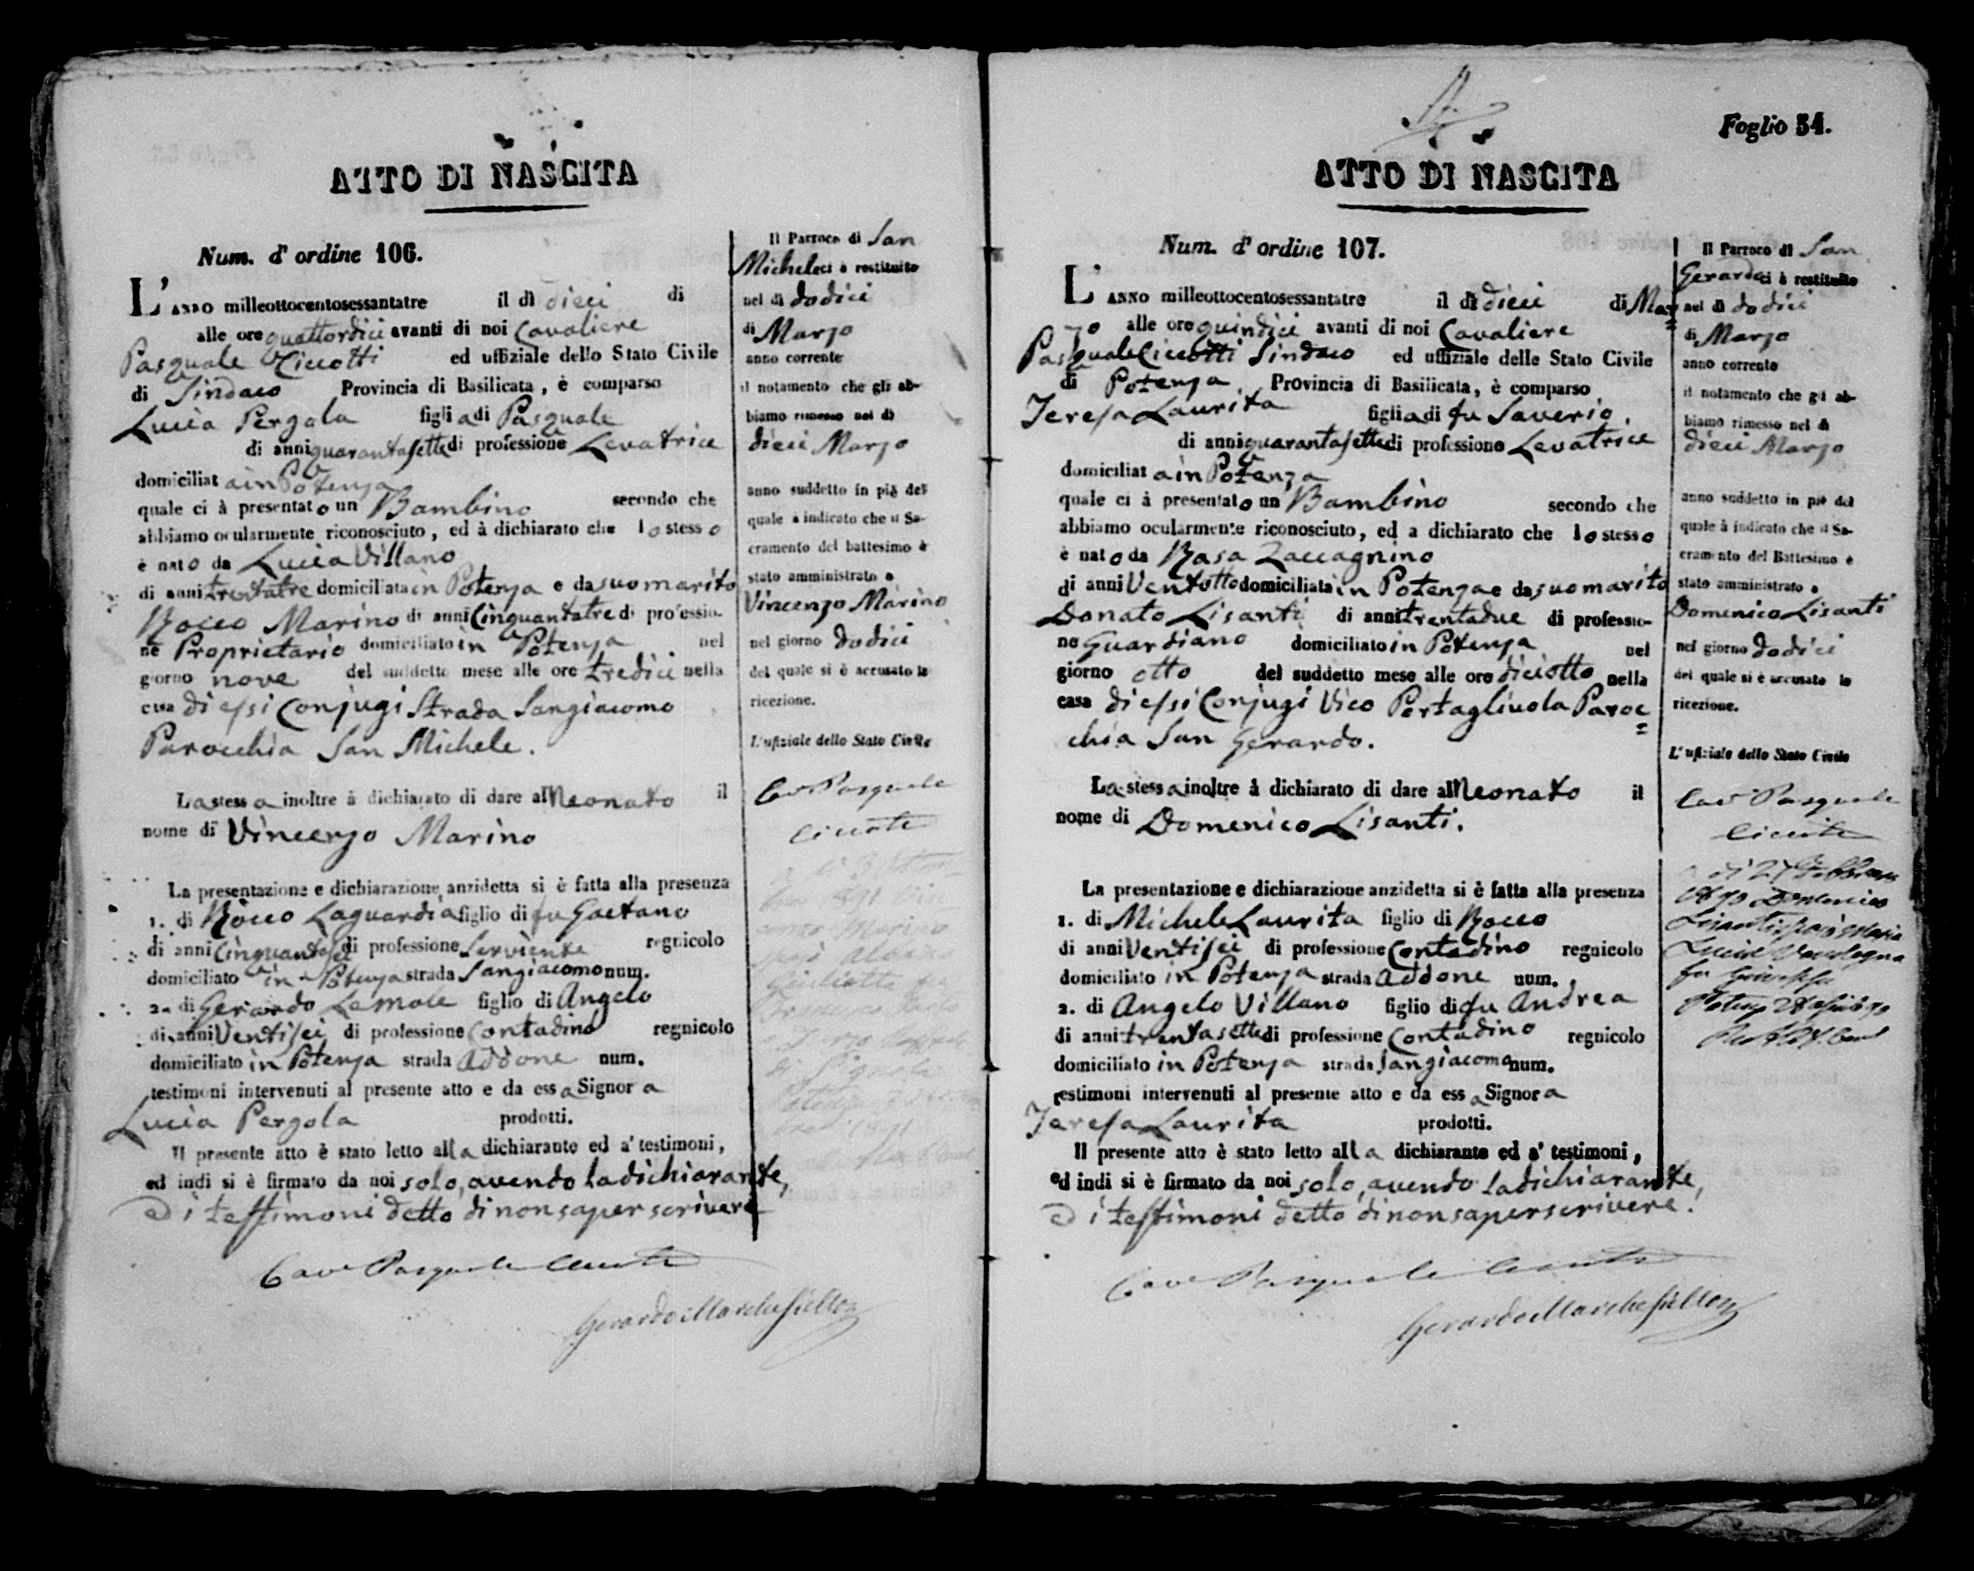 ATTO DI NASCITA
Num. d' ordine 106.
L'ANNO milleottocentosessantatre il dì dieci di
alle ore quattordici avanti di noi Cavaliere
Pasquale Ciccotti ed uffiziale dello Stato Civile
di Sindaco Provincia di Basilicata, è comparso
Lucia Pergola figlia di Pasquale
di anni quarantasette di professione Levatrice
domiciliata in Potenza
quale ci à presentato un Bambino secondo che
abbiamo ocularmente riconosciuto, ed à dichiarato che lo stesso
è nato da Lucia Villano
di anni trentatre domiciliata in Potenza e da suo marito
Rocco Marino di anni Cinquantatre di professio-
ne Proprietario domiciliato in Potenza nel
giorno nove del suddetto mese alle ore tredici nella
casa di essi Conjugi Strada Sangiacomo
Parocchia San Michele.
La stessa inoltre à dichiarato di dare al Neonato il
nome di Vincenzo Marino
La presentazione e dichiarazione anzidetta si è fatta alla presenza
1. di Rocco Laguardia figlio di fu Gaetano
di anni Cinquantasei di professione Serviente regnicolo
domiciliato in Potenza strada Sangiacomo num.
2. di Gerardo Lemole figlio di Angelo
di anni Ventisei di professione Contadino regnicolo
domiciliato in Potenza strada Addone num.
testimoni intervenuti al presente atto e da essa Signora
Lucia Pergola prodotti.
Il presente atto è stato letto alla dichiarante ed a' testimoni,
ed indi si è firmato da noi solo, avendo la dichiarante,
e di testimoni detto di non saper scrivere
Cav Pasquale Ciccotti
Gerardo Marchesiello
Il Parroco di San
Michele ci à restituito
nel dì dodici
di Marzo
anno corrente
il notamento che gli ab-
biamo rimesso nel dì
dieci Marzo
anno suddetto in piè del
quale à indicato che il Sa-
cramento del battesimo è
stato amministrato a
Vincenzo Marino
nel giorno dodici
del quale si è accusato la
ricezione.
L'ufiziale dello Stato Civile
Cav Pasquale
Ciccotti
Foglio 54.
ATTO DI NASCITA
Num. d' ordine 107.
L'ANNO milleottocentosessantatre il dì dieci di Mar=
zo alle ore quindici avanti di noi Cavaliere
Pasquale Ciccotti Sindaco ed uffiziale delle Stato Civile
di Potenza, Provincia di Basilicata, è comparso
Teresa Laurita figlia di fu Saverio,
di anni quarantasette di professione Levatrice
domiciliata in Potenza
quale ci à presentato un Bambino secondo che
abbiamo ocularmente riconosciuto, ed a dichiarato che lo stesso
è nato da Rosa Zaccagnino
di anni Ventotto domiciliata in Potenza e da suo marito
Donato Lisanti di anni trentadue di professio-
ne Guardiano domiciliato in Potenza nel
giorno otto del suddetto mese alle ore diciotto nella
casa di essi Conjugi Vico Portagliuola Paroc=
chia San Gerardo.
La stessa inoltre à dichiarato di dare al Neonato il
nome di Domenico Lisanti.
La presentazione e dichiarazione anzidetta si è fatta alla presenza
1. di Michele Laurita figlio di Rocco
di anni Ventisei di professione Contadino regnicolo
domiciliato in Potenza strada Addone num.
2. di Angelo Villano figlio di fu Andrea
di anni trentasette di professione Contadino regnicolo
domiciliato in Potenza strada Sangiacomo num.
testimoni intervenuti al presente atto e da essa Signora
Teresa Laurita prodotti.
Il presente atto è stato letto alla dichiarante ed a' testimoni,
ed indi si è firmato da noi solo, avendo la dichiarante,
e di testimoni detto di non saper scrivere.
Cav Pasquale Ciccotti
Gerardo Marchesiello
Il Parroco di San
Gerardo ci à restituito
nel dì dodici
di Marzo
anno corrente
il notamento che gli ab-
biamo rimesso nel dì
dieci Marzo
anno suddetto in piè del
quale à indicato che il Sa-
cramento del Battesimo è
stato amministrato a
Domenico Lisanti
nel giorno dodici
del quale si è accusato la
ricezione.
L'ufiziale dello Stato Civile
Cav Pasquale
Ciccotti
dì 27 Febbraio
1890 Domenico
Lisanti sposò Maria
Lucia
fu Giuseppe